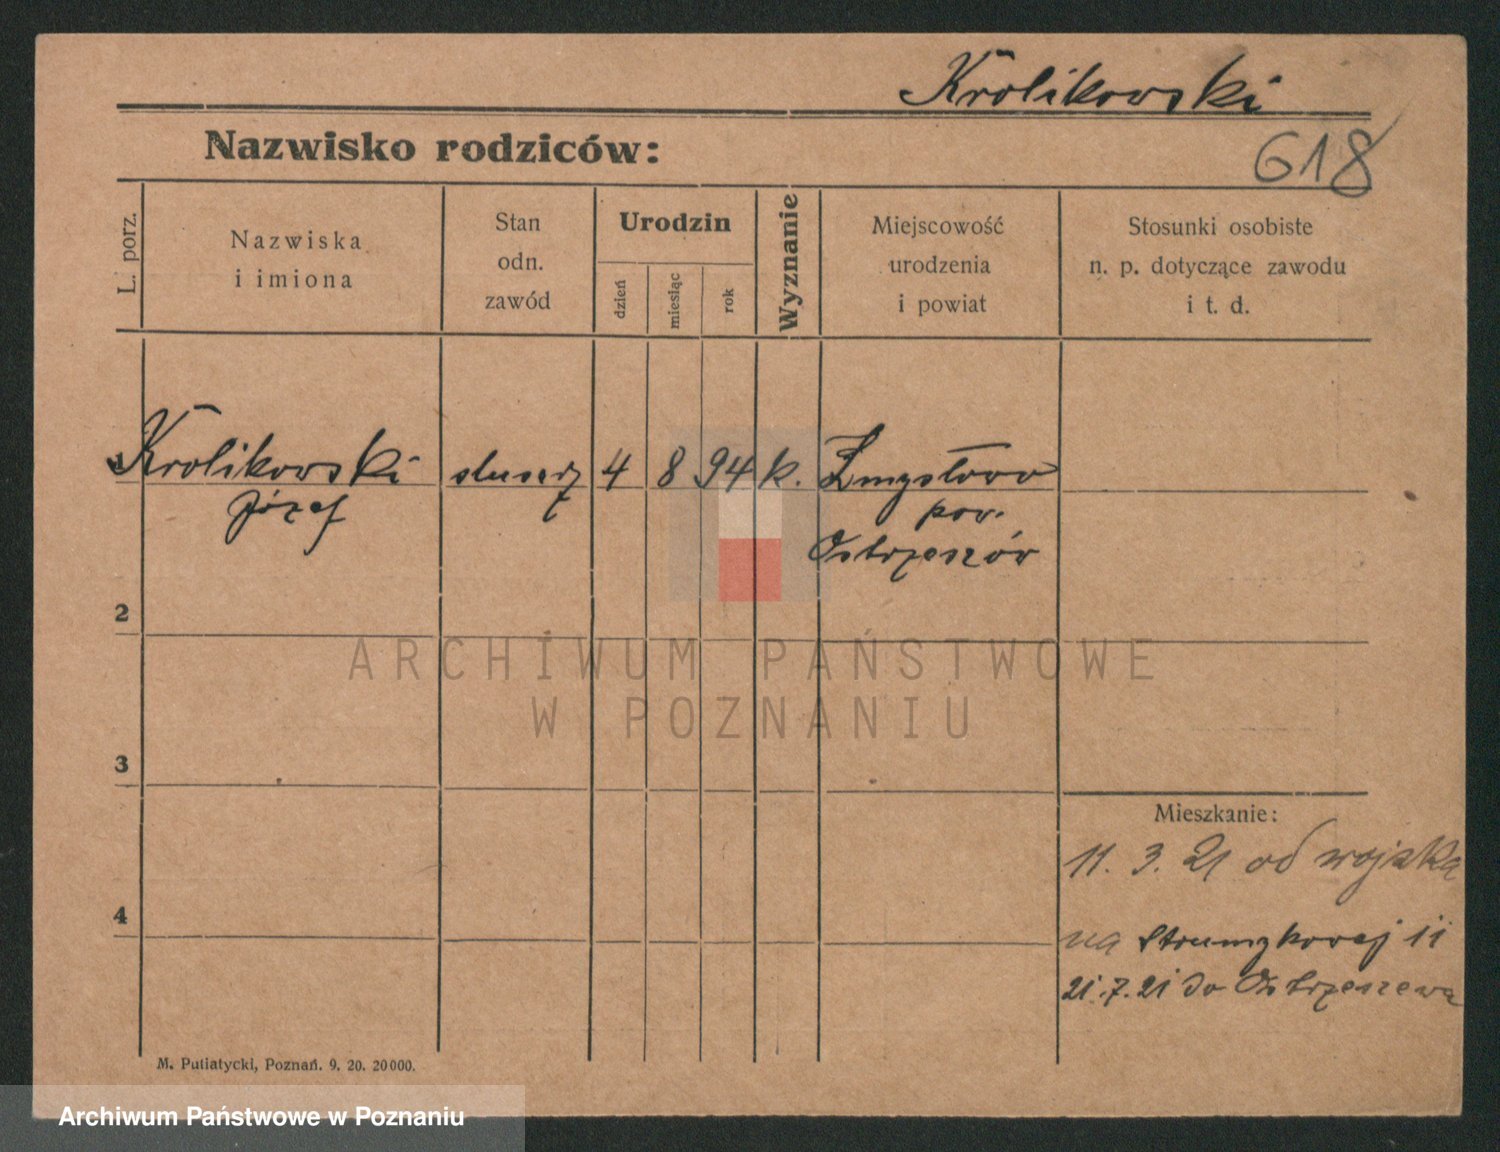 Królikowski
618
Nazwisko rodziców:
L. porz.
Nazwiska
i imiona
Stan
odn.
zawód
Urodzin
dzień
miesiąc
rok
Wyznanie
Miejscowość
urodzenia
i powiat
Stosunki osobiste
n. p. dotyczące zawodu
i t. d.
1 Królikowski ślusarz 4 8 94 k. Zmysłowo
Józef pow.
Ostrzeszów
2
ARCHIWUM PAŃSTWOWE
W POZNANIU
3
Mieszkanie:
11. 3. 21 od wojska
4
na Strumykowej 11
21.7.21 do Ostrzeszewa
M. Putiatycki, Poznań. 9. 20. 20000.
Archiwum Państwowe w Poznaniu